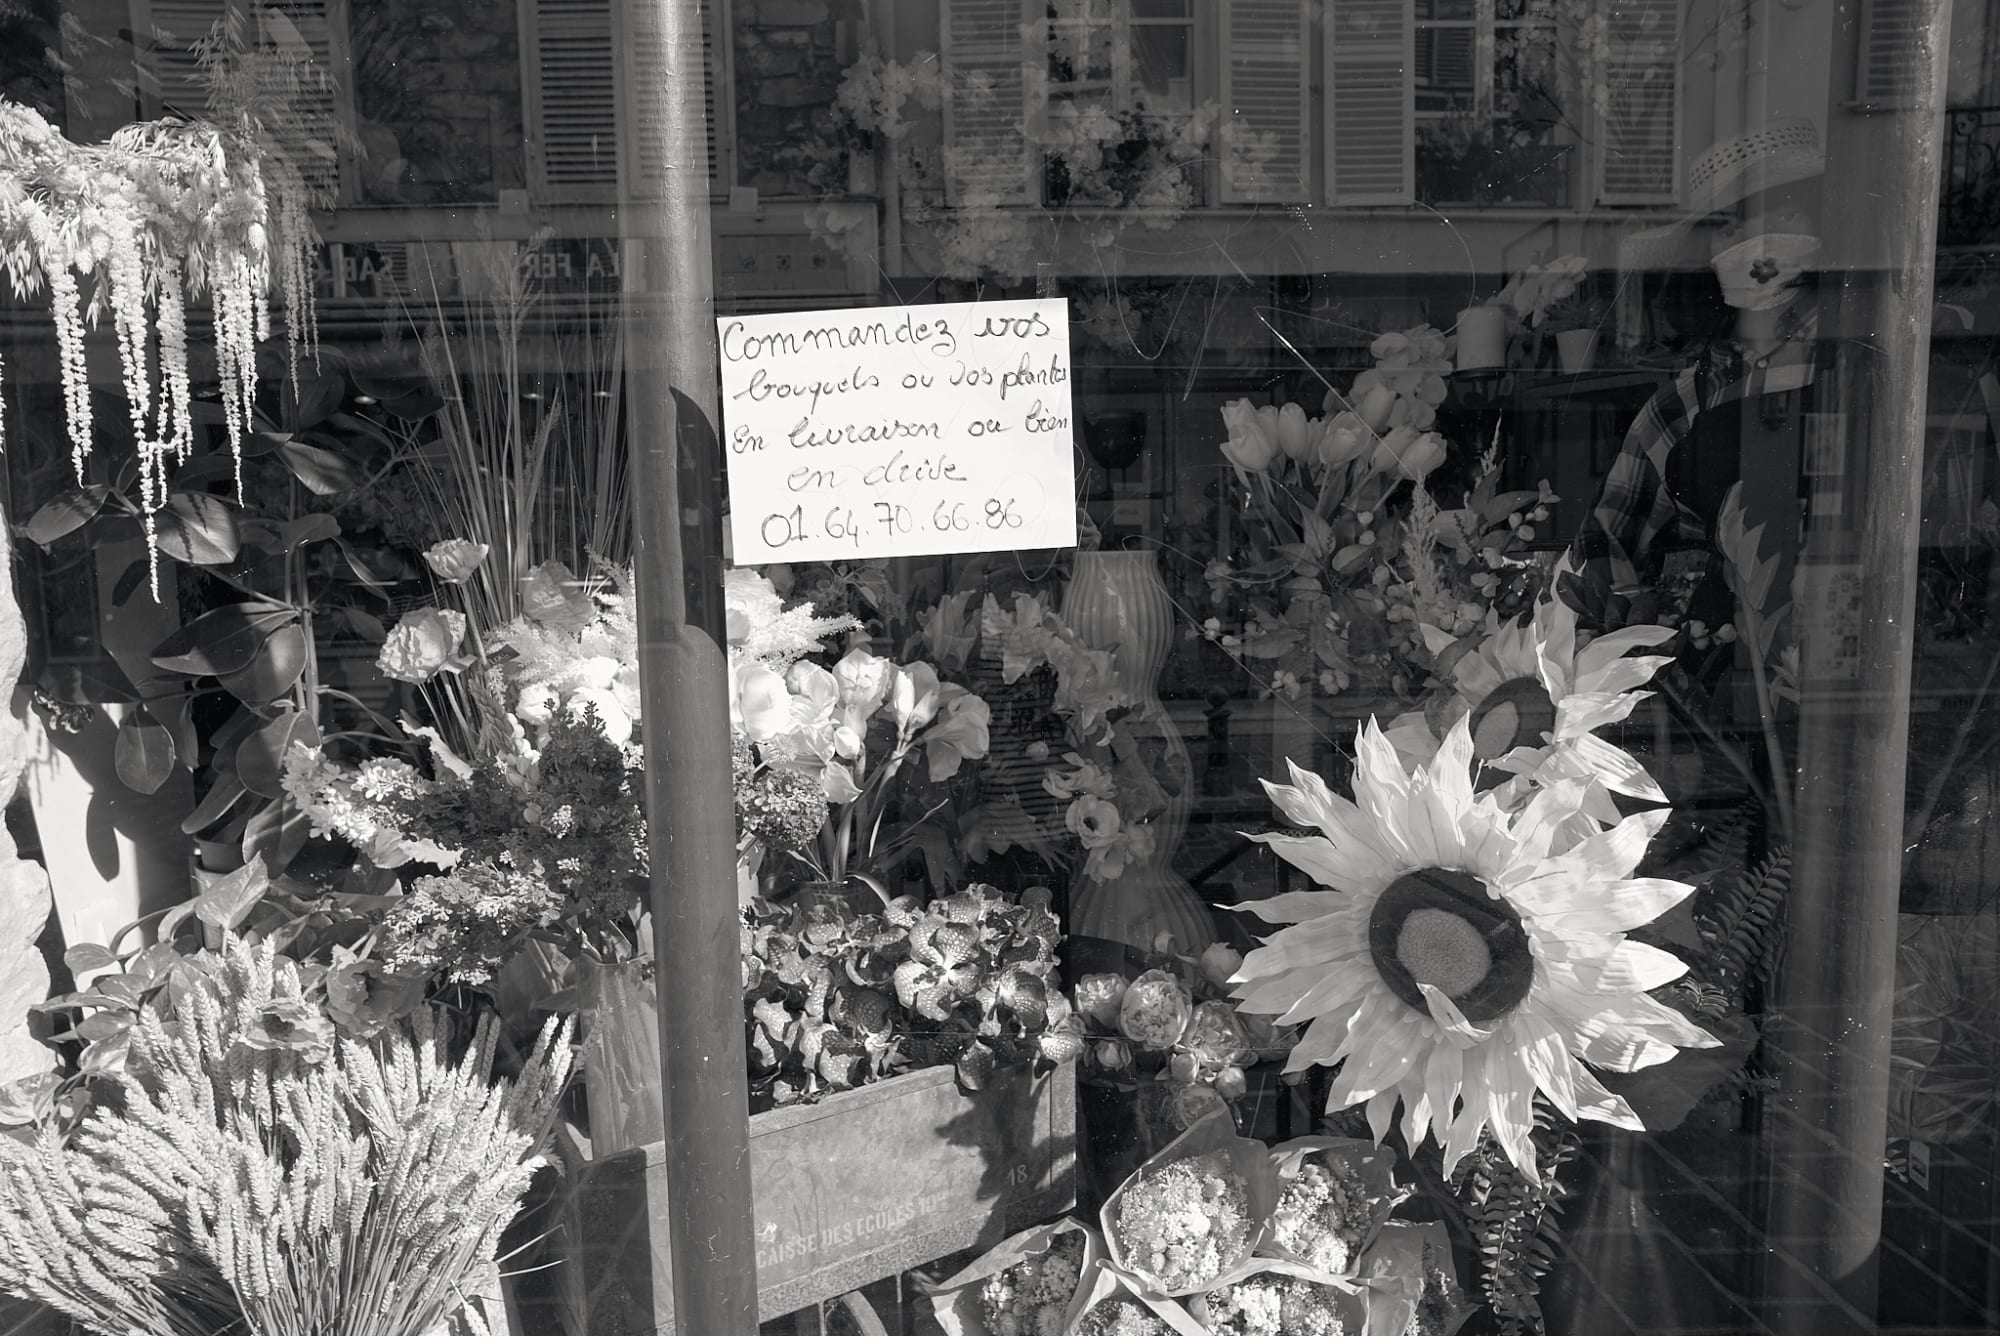 Commandez vos
bouquets ou vos plantes
En livraison ou bien
en drive
01.64.70.66.86
LA FER
SABL
18
CAISSE DES ECOLES